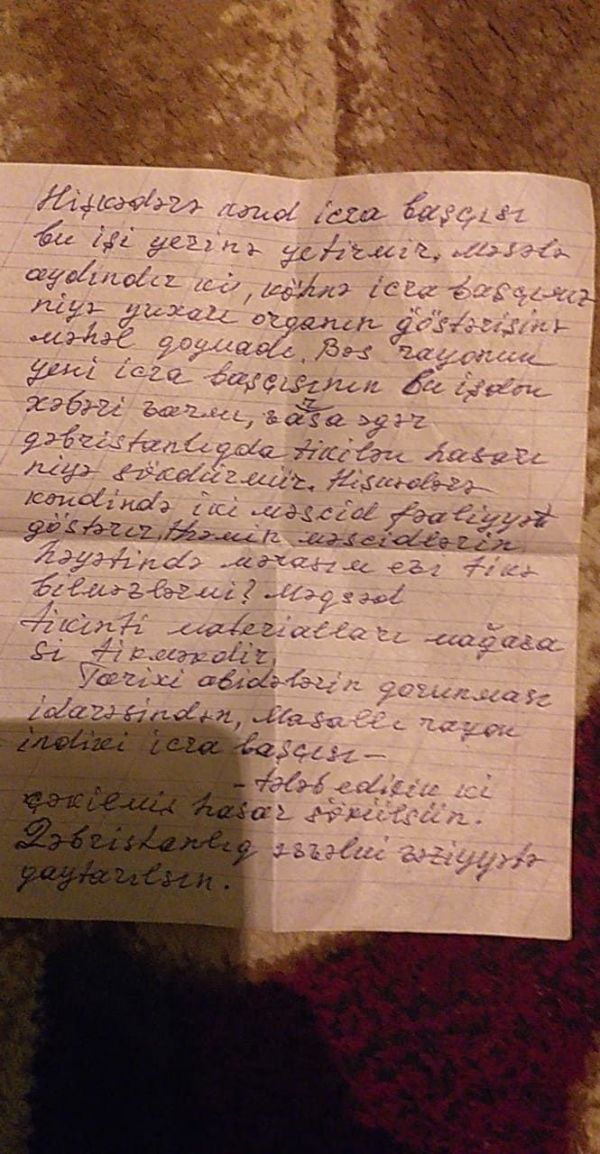 Hişkədərə kənd icra başçısı
bu işi yerinə yetirmir. Məsələ
aydındır ki, köhnə icra başçımız
niyə yuxarı organın göstərişinə
məhəl qoymadı. Bəs rayonun
yeni icra başçısının bu işdən
xəbəri varmı, varsa əgər
qəbristanlıqda tikilən hasarı
niyə sökdürmür. Hişkədərə
kəndində iki məscid fəaliyyət
göstərir, həmin məscidlərin
həyətində mərasim evi tikə
bilməzlərmi? Məqsəd
tikinti materialları mağaza
sı tikməkdir.
Tarixi abidələrin qorunması
idarəsindən, Masallı rayon
indiki icra başçısı-
- tələb edirik ki
çəkilmiş hasar sökülsün.
Qəbristanlıq əvvəlki vəziyyətə
qaytarılsın.